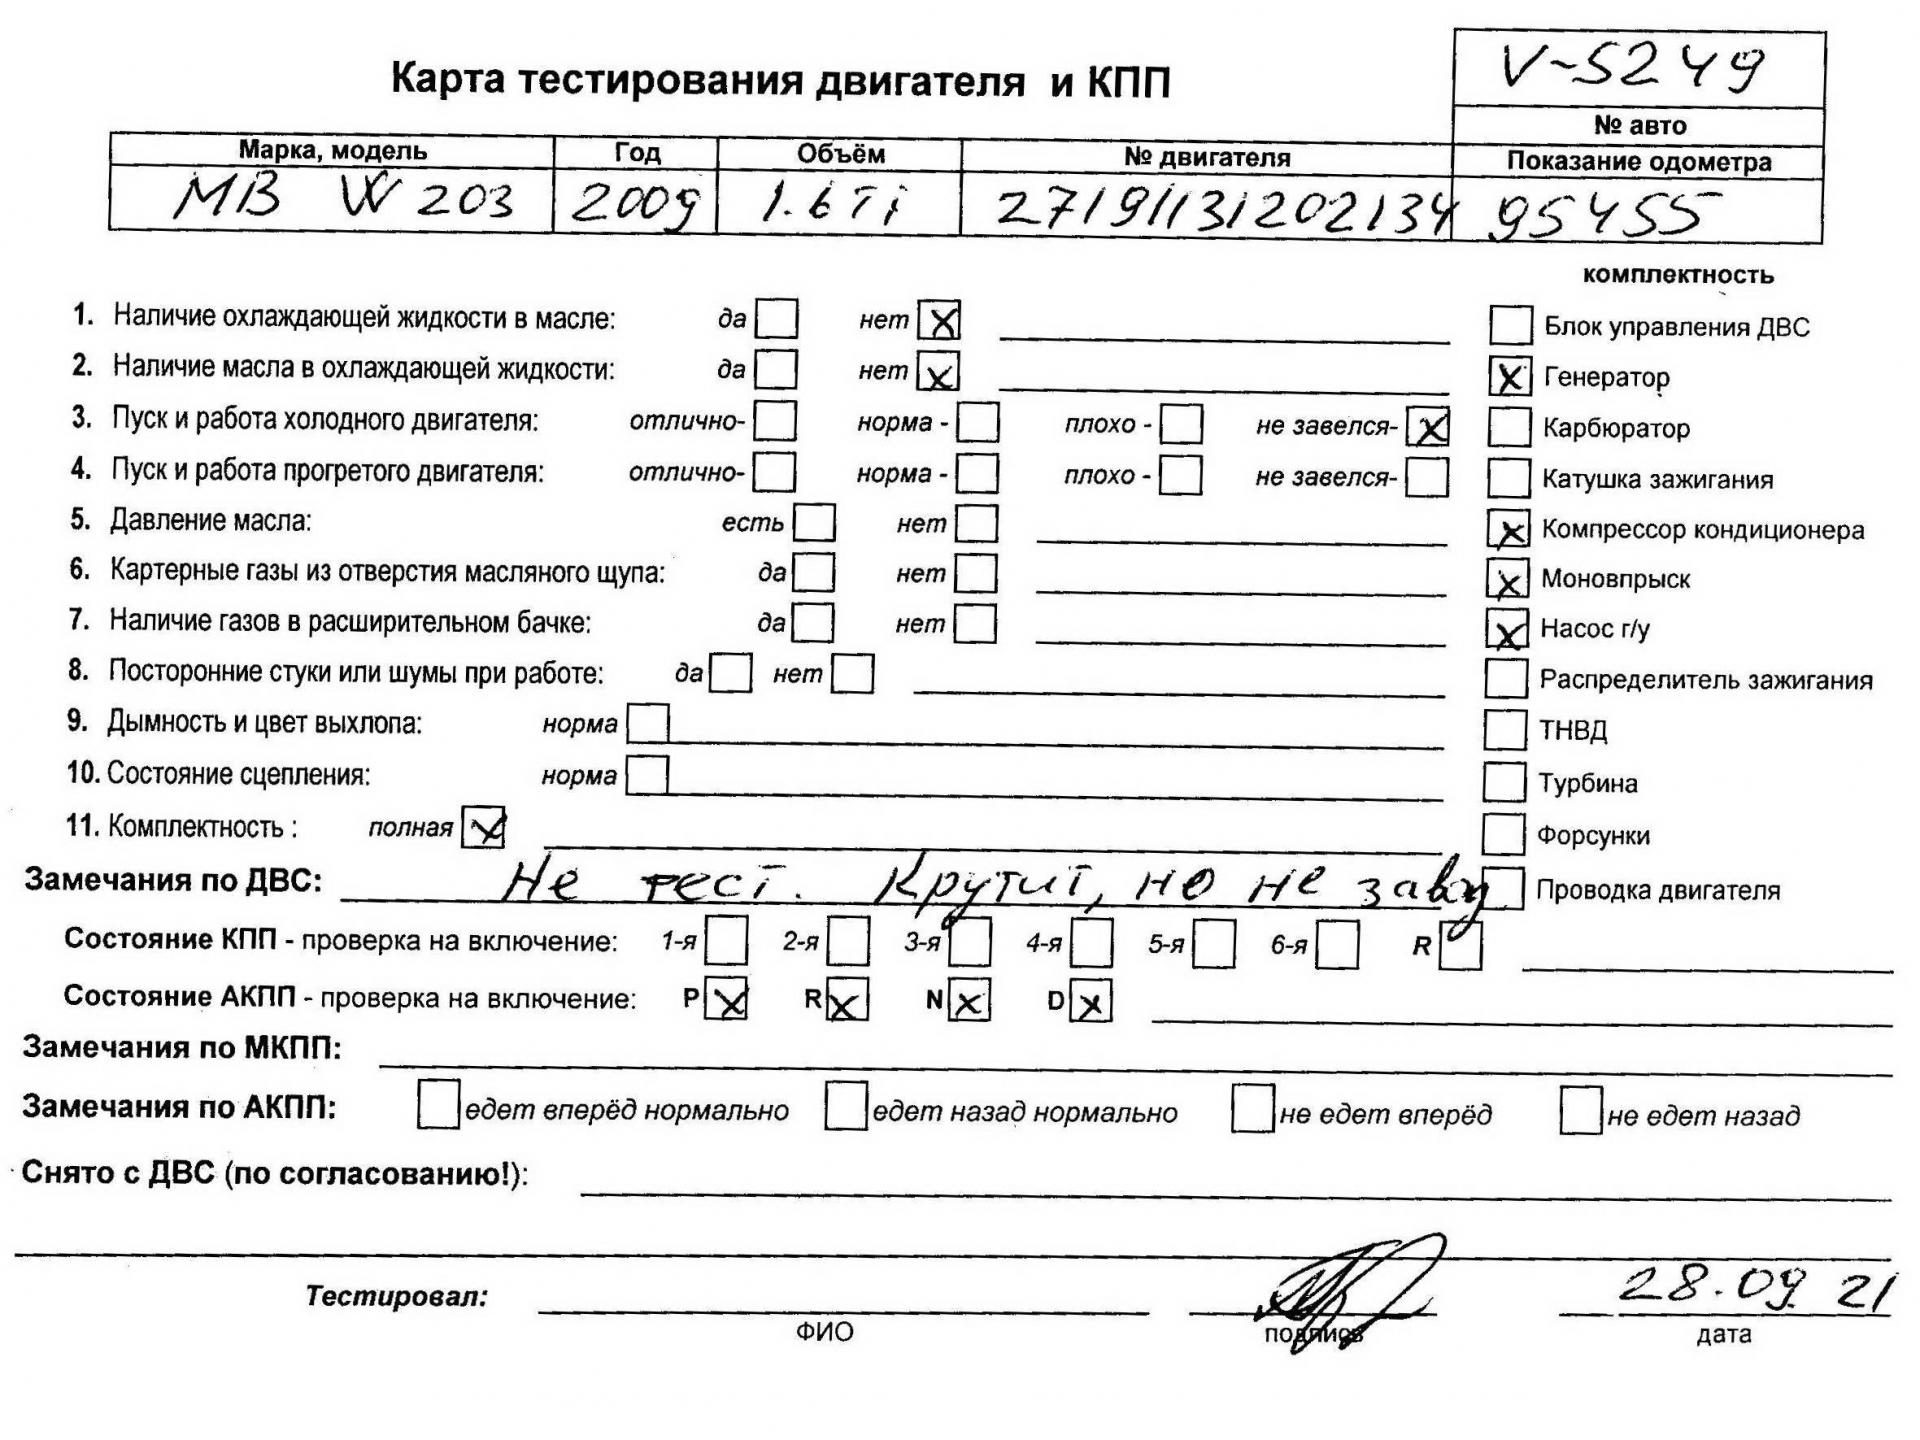 V-5249
Карта тестирования двигателя и КПП
№ авто
Марка, модель Год Объём № двигателя Показание одометра
MB W203 2009 1.6Ti 27191131202134 95455
комплектность
1. Наличие охлаждающей жидкости в масле: да нет X Блок управления ДВС
2. Наличие масла в охлаждающей жидкости: да нет X X Генератор
3. Пуск и работа холодного двигателя: отлично- норма - плохо - не завелся- X Карбюратор
4. Пуск и работа прогретого двигателя: отлично- норма - плохо - не завелся- Катушка зажигания
5. Давление масла: есть нет X Компрессор кондиционера
6. Картерные газы из отверстия масляного щупа: да нет X Моновпрыск
7. Наличие газов в расширительном бачке: да нет X Насос г/у
8. Посторонние стуки или шумы при работе: да нет Распределитель зажигания
9. Дымность и цвет выхлопа: норма ТНВД
10. Состояние сцепления: норма Турбина
11. Комплектность : полная X Форсунки
Замечания по ДВС: Не тест. Крутит, но не завод Проводка двигателя
Состояние КПП - проверка на включение: 1-я 2-я 3-я 4-я 5-я 6-я R
Состояние АКПП - проверка на включение: P X R X N X D X
Замечания по МКПП:
Замечания по АКПП: едет вперёд нормально едет назад нормально не едет вперёд не едет назад
Снято с ДВС (по согласованию!):
Тестировал: 28.09.21
ФИО подпись дата